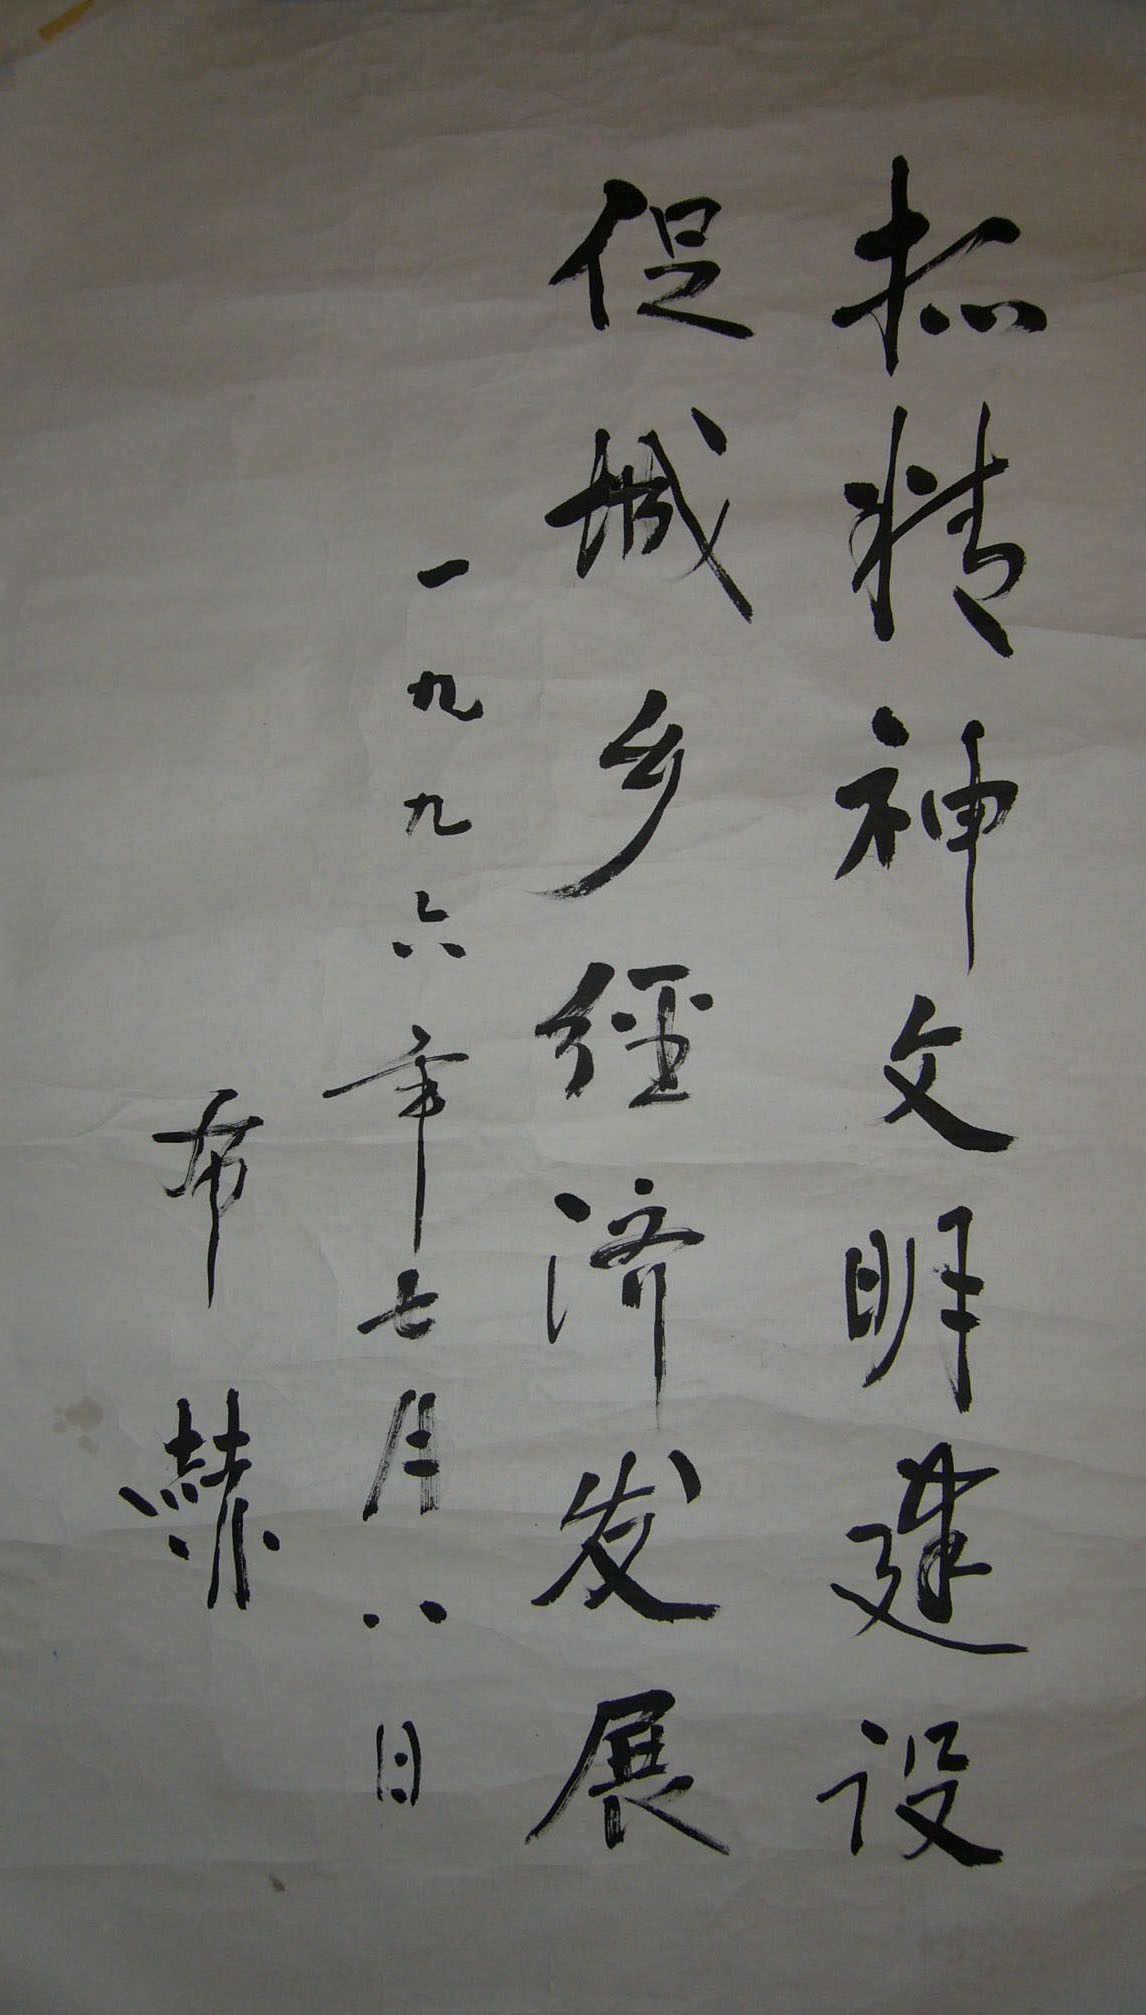 抓精神文明建设
促城乡经济发展
一九九六年七月八日
布赫